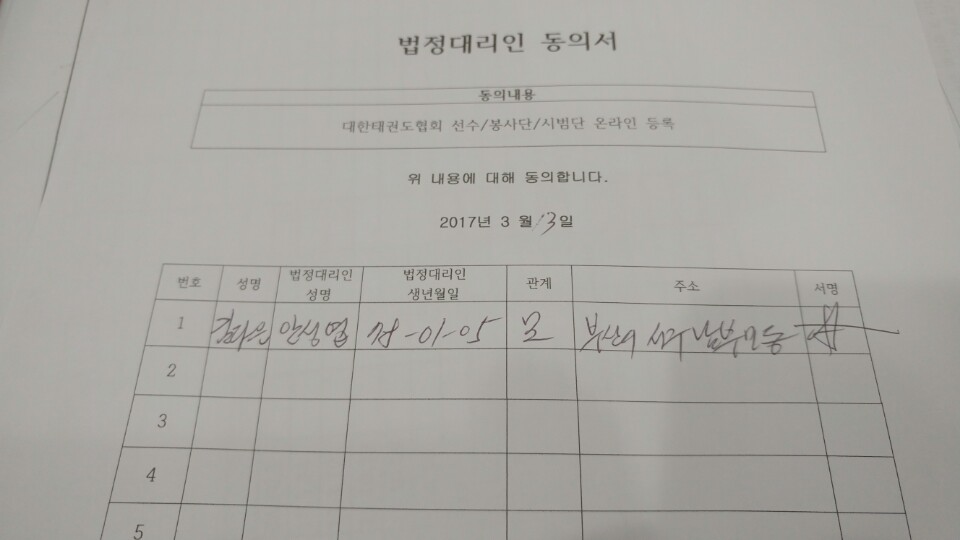 법정대리인 동의서
동의내용
대한태권도협회 선수/봉사단/시범단 온라인 등록
위 내용에 대해 동의합니다.
2017년 3 월 13일
번호 성명 법정대리인 성명 법정대리인 생년월일 관계 주소 서명
1 김다은 -01-05 모 부산시 서구 남부민동
2
3
4
5